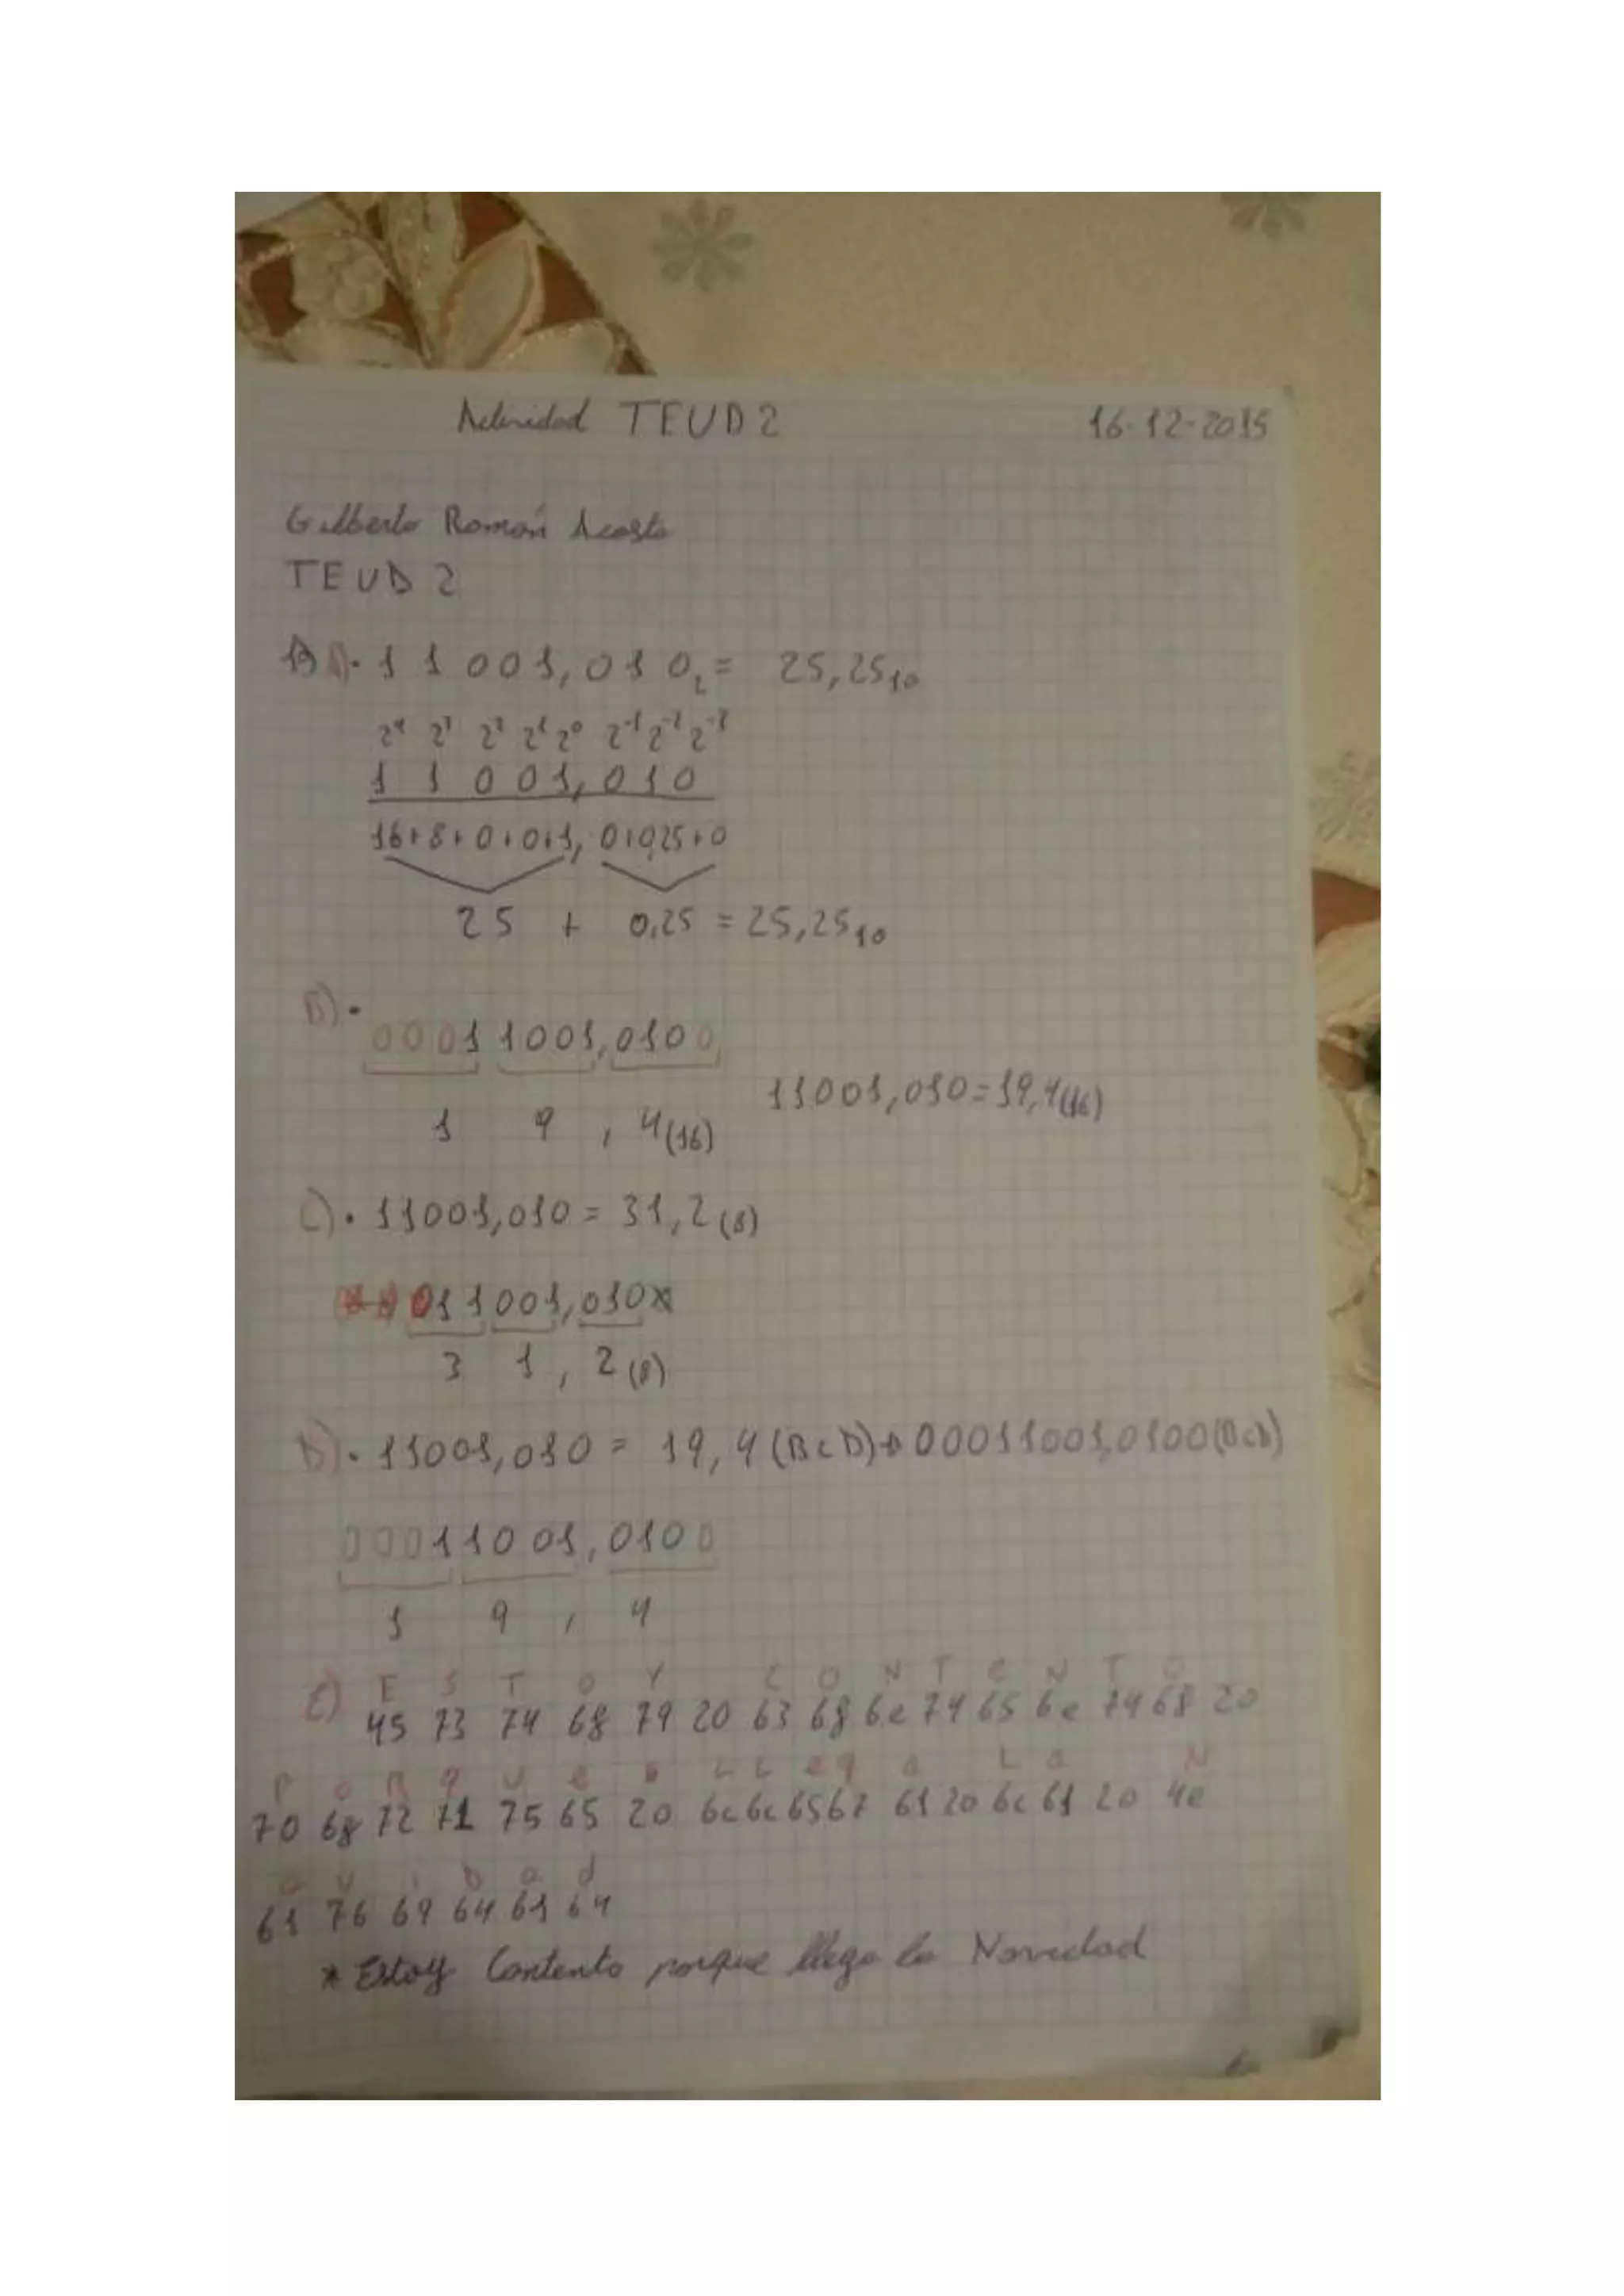 Actividad TEUD2 16-12-2015
Gilberto Román Acosta
TEUD 2
A). 1 1 0 0 1, 0 1 0₂ = 25,25₁₀
2⁴ 2³ 2² 2¹ 2⁰ 2⁻¹ 2⁻² 2⁻³
1 1 0 0 1, 0 1 0
16+8+0+0+1, 0+0,25+0
25 + 0,25 = 25,25₁₀
B).
0001 1001,0100
11001,010=19,4(16)
1 9 , 4(16)
C). 11001,010 = 31,2(8)
011 001,010
3 1 , 2(8)
D). 11001,010 = 19,4 (BCD)→00011001,0100(BCD)
0001 1001,0100
1 9 , 4
E S T O Y C O N T E N T O
E) 45 73 74 68 79 20 63 68 6e 74 65 6e 74 68 20
P O R q U e L L e g a L a N
70 68 72 71 75 65 20 6c 6c 65 67 61 20 6c 61 20 4e
a v i D a d
61 76 69 64 61 64
* Estoy Contento porque llega la Navidad